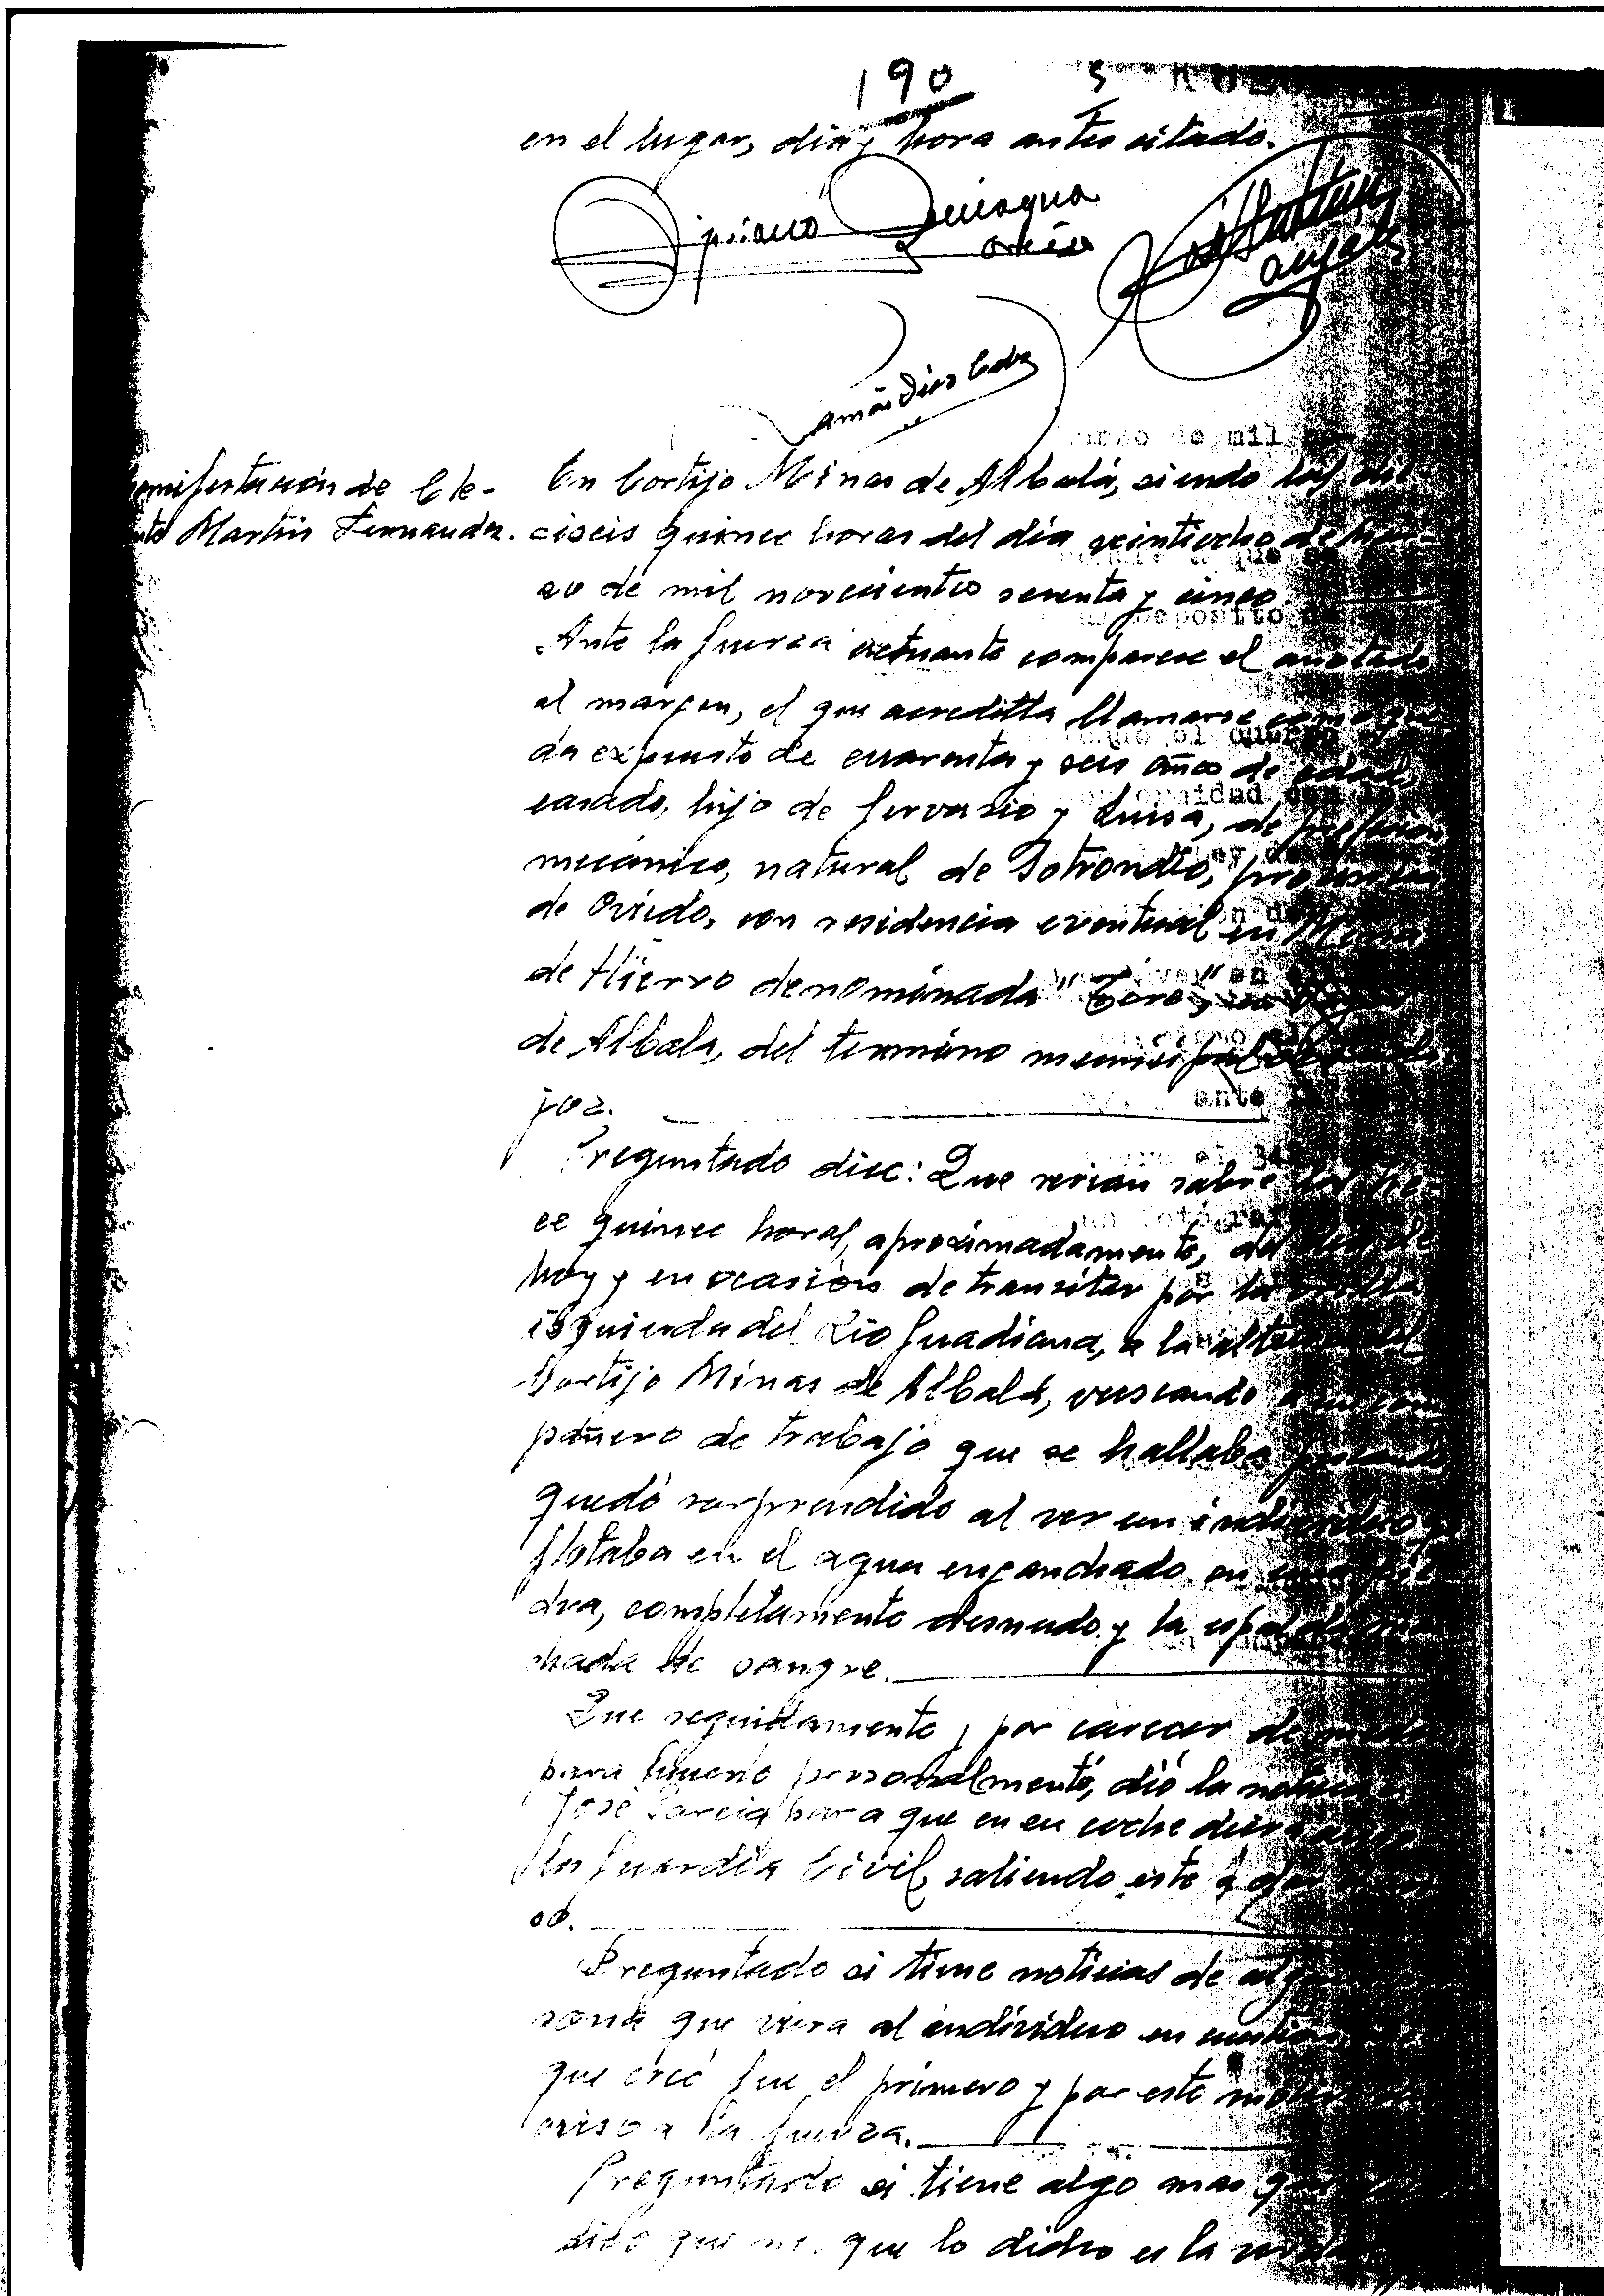 190
en el lugar, dia y hora antes citado.
Cipriano
manifestación de Cle-
nte Martín Fernandez.
En Cortijo Minas de Albalá, siendo las die
ciseis quince horas del día veintiocho de
zo de mil novecientos sesenta y cinco
Ante la fuerza actuante comparece el anotado
al margen, el que acredita llamarse como que
da expuesto de cuarenta y seis años de edad,
casado, hijo de Gervasio y Luisa, de profesion
mecánico, natural de Sotrondio, provincia
de Oviedo, con residencia eventual en Mina
de Hierro denominada
de Albala, del termino municipal
joz.
Preguntado dice: Que serian sobre las tre-
ce quince horas, aproximadamente, del dia de
hoy y en ocasión de transitar por la orilla
izquierda del Rio Guadiana, a la altura del
Cortijo Minas de Albalá, vuscando a un com
pañero de trabajo que se hallaba pescando
quedó sorprendido al ver un individuo
flotaba en el agua enganchado en una pie
dra, completamente desnudo y la espalda
chada de sangre.
Que seguidamente y por carecer de
para hacerlo personalmente, dió la noticia
José García para que en su coche diera
la Guardia Civil saliendo este a dar
so.
Preguntado si tiene noticias de
sona que viera al individuo en cuestion
que creé fue el primero y por este motivo
aviso a la fuerza.
Preguntado si tiene algo mas que
dijo que no, que lo dicho es la